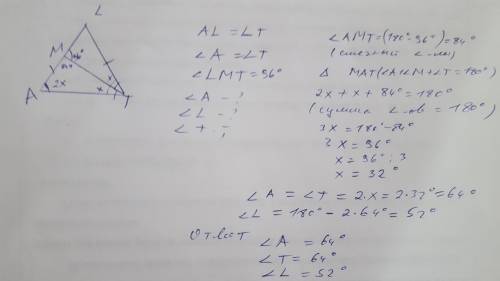 L
M
96°
84°
A
2x
x
T
AL = LT
∠A = ∠T
∠LMT = 96°
∠A - ?
∠L - ?
∠T - ?
∠AMT = (180° - 96°) = 84°
(смежный
Δ MAT (∠A+∠M+∠T = 180°)
2x + x + 84° = 180°
(сумма ∠-ов = 180°)
3x = 180° - 84°
3x = 96°
x = 96° : 3
x = 32°
∠A = ∠T = 2·x = 2·32° = 64°
∠L = 180° - 2·64° = 52°
Ответ
∠A = 64°
∠T = 64°
∠L = 52°